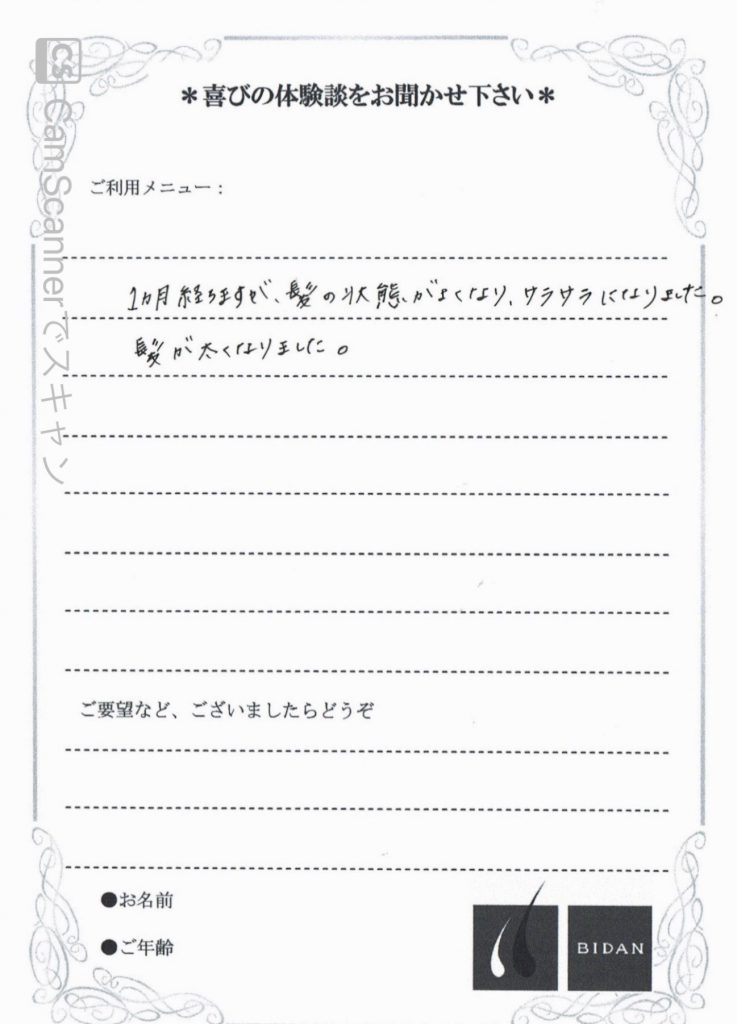 *喜びの体験談をお聞かせ下さい*
ご利用メニュー：
1ヵ月経ちますが、髪の状態がよくなり、サラサラになりました。
髪が太くなりました。
ご要望など、ございましたらどうぞ
●お名前
●ご年齢
BIDAN
CS CamScannerでスキャン